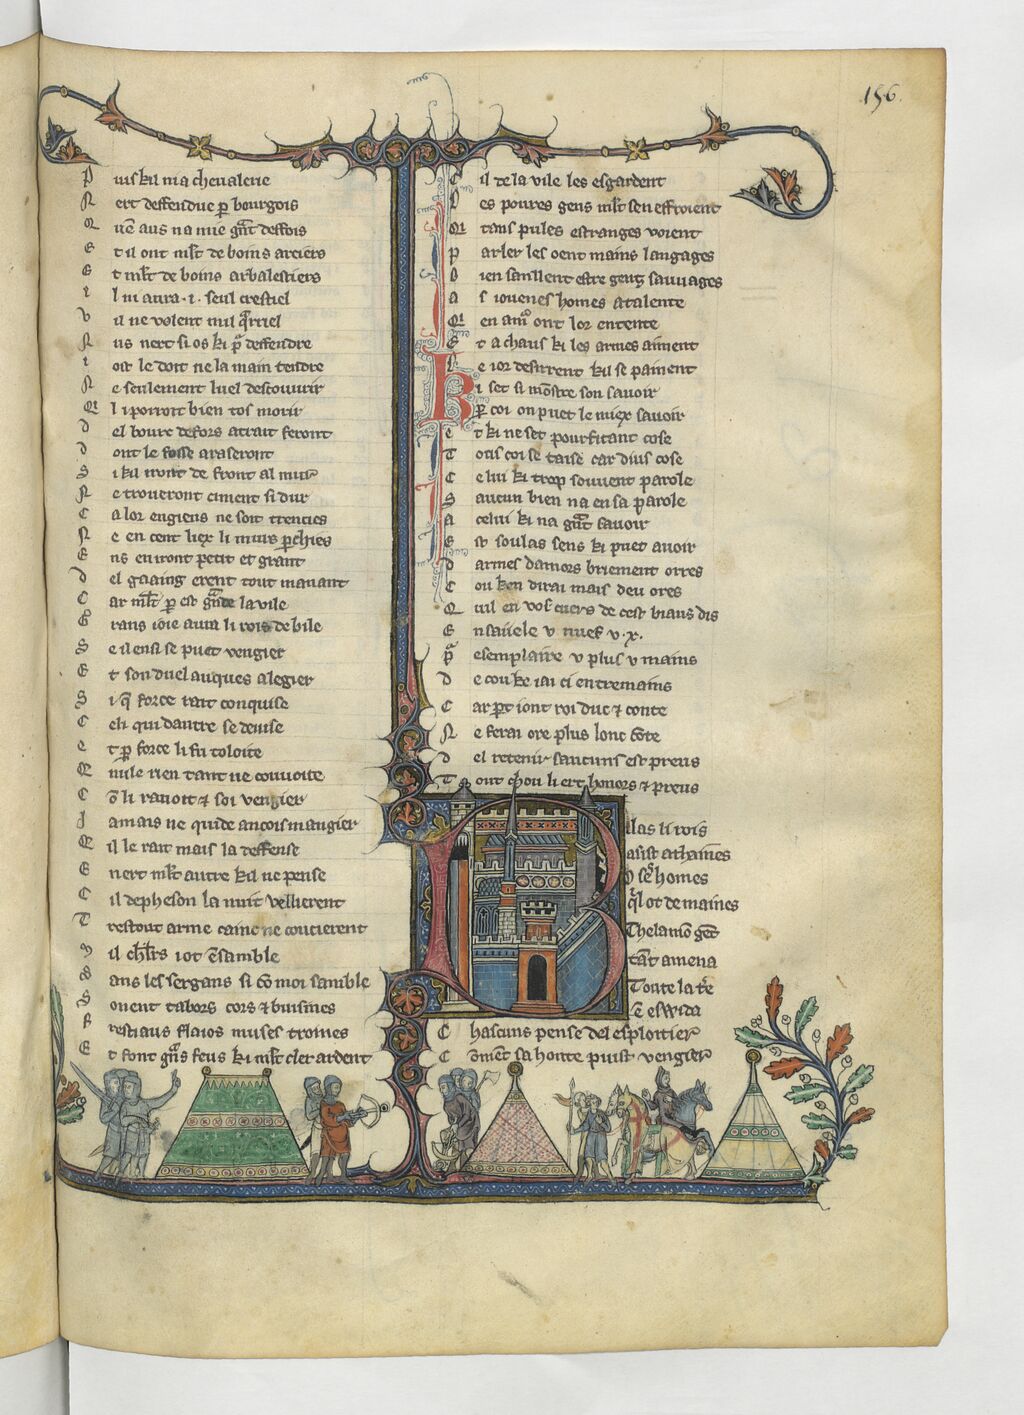 156.
P uis kil ma cheualerie
N ert deffendue p bourgois
Q uē aus na mie gͣnt deffois
E t il ont mlt de boins arciers
E t mlt de boins arbalestiers
I l ni aura .i. seul crestiel
V il ne volent mil qͣrriel
N us nert si os ki pͣ deffendre
I ost le doit ne la main tendre
N e seulement luel descouurir
Q l i porroit bien tos morir
D el bourc defors atrait feront
D ont le fosse araseront
S i kil iront de front al mur
N e troueront ciment si dur
C a lor engiens ne soit trencies
N e en cent liex li murs pchies
E ns en iront petit et grant
D el gaaing erent tout manant
C ar mlt p est gͣnde la vile
G rans ioie aura li rois de bile
S e il ensi se puet vengier
E t son duel auques alegier
S i qͣ force rait conquise
C eli qui dautre se deuise
E t p force li fu toloite
Q nule rien tant ne couuoite
C ō li rauoir ⁊ soi vengier
J amais ne quide ancois mangier
Q il le rait mais la deffense
E nert mlt autre kil ne pense
C il depheson la nuit vellierent
T restout arme cainc ne coucierent
M il chlrs iot ēsamble
S ans les sergans si cō moi samble
S ouent tabors cors ⁊ buisines
F restiaus flaios muses troines
E t font gͣns feus ki mlt cler ardent
C il de la vile les esgardent
L es poures gens mlt sen effroient
Q tans pules estranges voient
P arler les oent mains langages
B ien sanllent estre gens sauuages
A s iouenes homes atalente
Q en amˀ ont lor entente
E t a chaus ki les armes aiment
L e ior desirrent kil se paiment
K i set si mōstre son sauoir
P coi on puet le miex sauoir
E t ki ne set pourfitant cose
T otis coi se taise car dius cose
C elui ki trop souuent parole
S aucun bien na en sa parole
A celui ki na gͣnt sauoir
E st soulas sens ki puet auoir
D armes damors briement orres
C ou ken dirai mais deu ores
Q uil en vos cuers de cest biaus dis
E nsauele v nuef v .x.
Pͣ esemplaire v plus v mains
D e cou ke iai ci entremains
C ar pt iont roi duc ⁊ conte
N e ferai ore plus lonc cōte
D el retenir saucuns est preus
T out chou li ert honors ⁊ preus
B ilas li rois
asist athaines
O seˢ homes
qͣl ot de maines
Thelamō gent
tāt amena
Toute la tˀre
ē eswida
C hascuns pense del esploitier
C ōment sa honte puist vengier